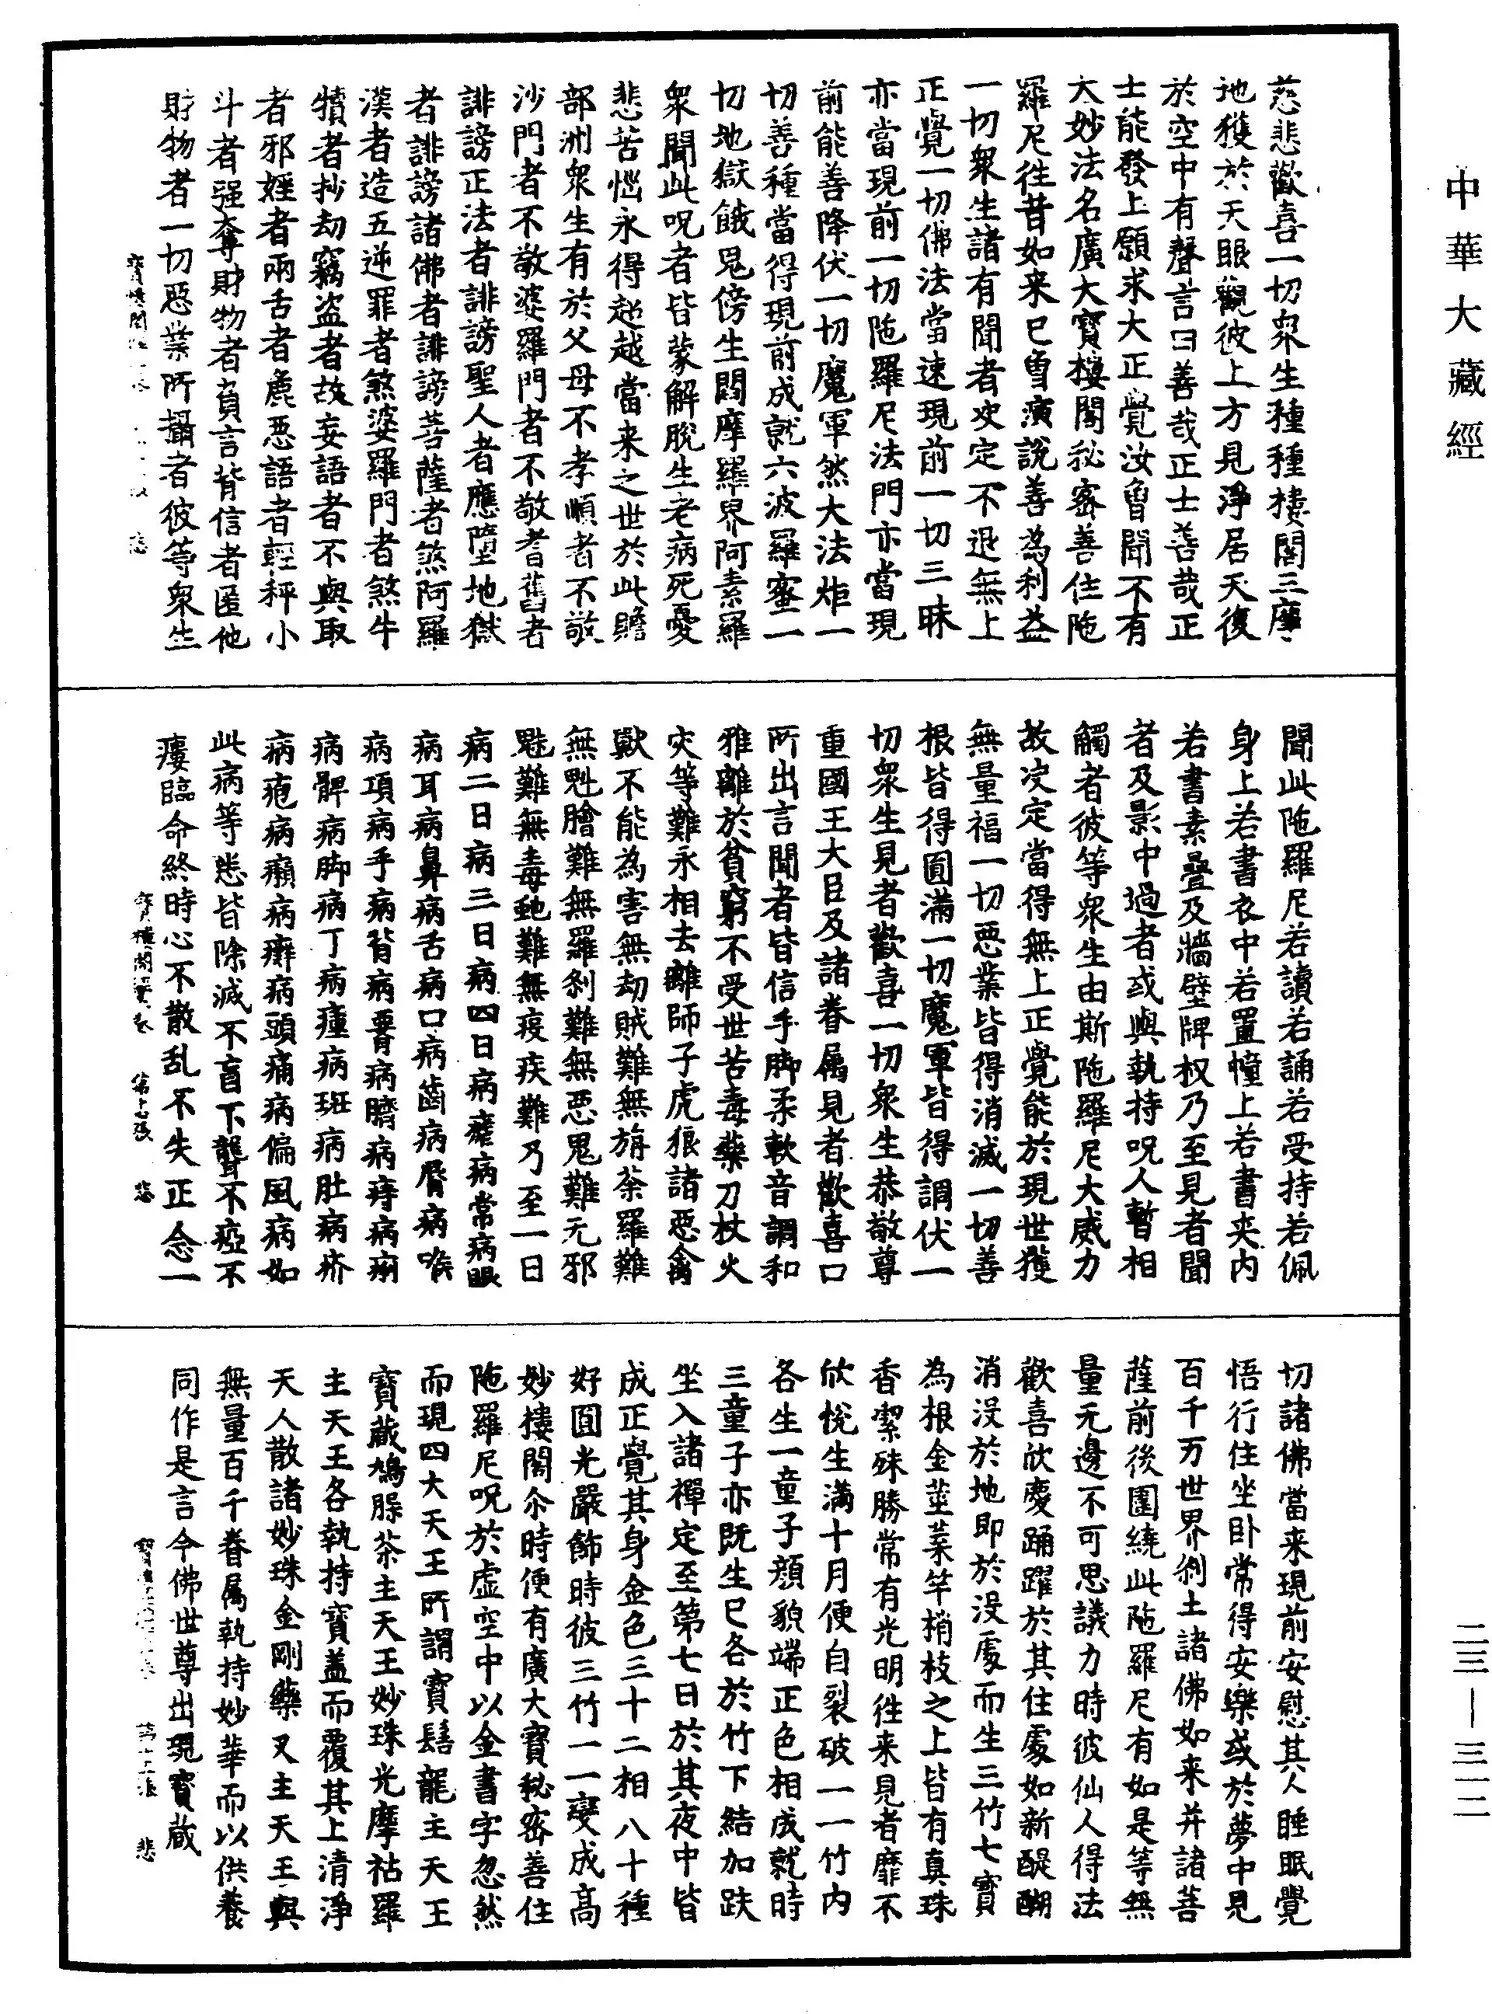 中華大藏經
慈悲歡喜一切衆生種種樓閣三摩
地獲於天眼觀彼上方見淨居天復
於空中有聲言曰善哉正士善哉正
士能發上願求大正覺汝曾聞不有
大妙法名廣大寶樓閣秘密善住陁
羅尼往昔如来已曽演說善為利益
一切衆生諸有聞者决定不退無上
正覺一切佛法當速現前一切三昧
亦當現前一切陁羅尼法門亦當現
前能善降伏一切魔軍然大法炬一
切善種當得現前成就六波羅蜜一
切地獄餓鬼傍生閻摩羅界阿素羅
衆聞此呪者皆蒙解脫生老病死憂
悲苦惱永得超越當来之世於此贍
部洲衆生有於父母不孝順者不敬
沙門者不敬婆羅門者不敬耆舊者
誹謗正法者誹謗聖人者應墮地獄
者誹謗諸佛者誹謗菩薩者煞阿羅
漢者造五逆罪者煞婆羅門者煞牛
犢者抄劫竊盜者故妄語者不與取
者邪婬者兩舌者麁惡語者輕秤小
斗者强奪財物者負言背信者匿他
財物者一切惡業所攝者彼等衆生
聞此陁羅尼若讀若誦若受持若佩
身上若書衣中若置幢上若書夾内
若書素疊及牆壁牌权乃至見者聞
者及影中過者或與執持呪人暫相
觸者彼等衆生由斯陁羅尼大威力
故决定當得無上正覺能於現世獲
無量福一切惡業皆得消滅一切善
根皆得圓滿一切魔軍皆得調伏一
切衆生見者歡喜一切衆生恭敬尊
重國王大臣及諸眷属見者歡喜口
所出言聞者皆信手脚柔軟音調和
雅離於貧窮不受世苦毒藥刀杖火
灾等難永相去離師子虎狼諸惡禽
獸不能為害無劫賊難無旃荼羅難
無魁膾難無羅刹難無惡鬼難无邪
魅難無毒虵難無疫疾難乃至一日
病二日病三日病四日病瘧病常病眼
病耳病鼻病舌病口病齒病脣病喉
病項病手病背病署病臍病痔病痢
病髀病脚病丁病瘇病斑病肚病疥
病疱病癩病癬病頭痛病偏風病如
此病等悉皆除滅不盲不聾不瘂不
瘻臨命終時心不散乱不失正念一
切諸佛當来現前安慰其人睡眠覺
悟行住坐卧常得安樂或於夢中見
百千万世界刹土諸佛如来并諸菩
薩前後圍繞此陁羅尼有如是等無
量无邊不可思議力時彼仙人得法
歡喜欣慶踊躍於其住處如新醍醐
消没於地即於没處而生三竹七寶
為根金莖葉竿梢枝之上皆有真珠
香潔殊勝常有光明徃来見者靡不
欣悅生滿十月便自裂破一一竹内
各生一童子顔貌端正色相成就時
三童子亦既生已各於竹下結加趺
坐入諸禪定至第七日於其夜中皆
成正覺其身金色三十二相八十種
好圓光嚴飾時彼三竹一一變成高
妙樓閣尒時便有廣大寶秘密善住
陁羅尼呪於虚空中以金書字忽然
而現四大天王所謂寶髻龍主天王
寶藏鳩䏶荼主天王妙珠光摩祜羅
主天王各執持寶盖而覆其上清淨
天人散諸妙珠金剛藥叉主天王與
無量百千眷属執持妙華而以供養
同作是言今佛世尊出現寶蔵
二三—三一二